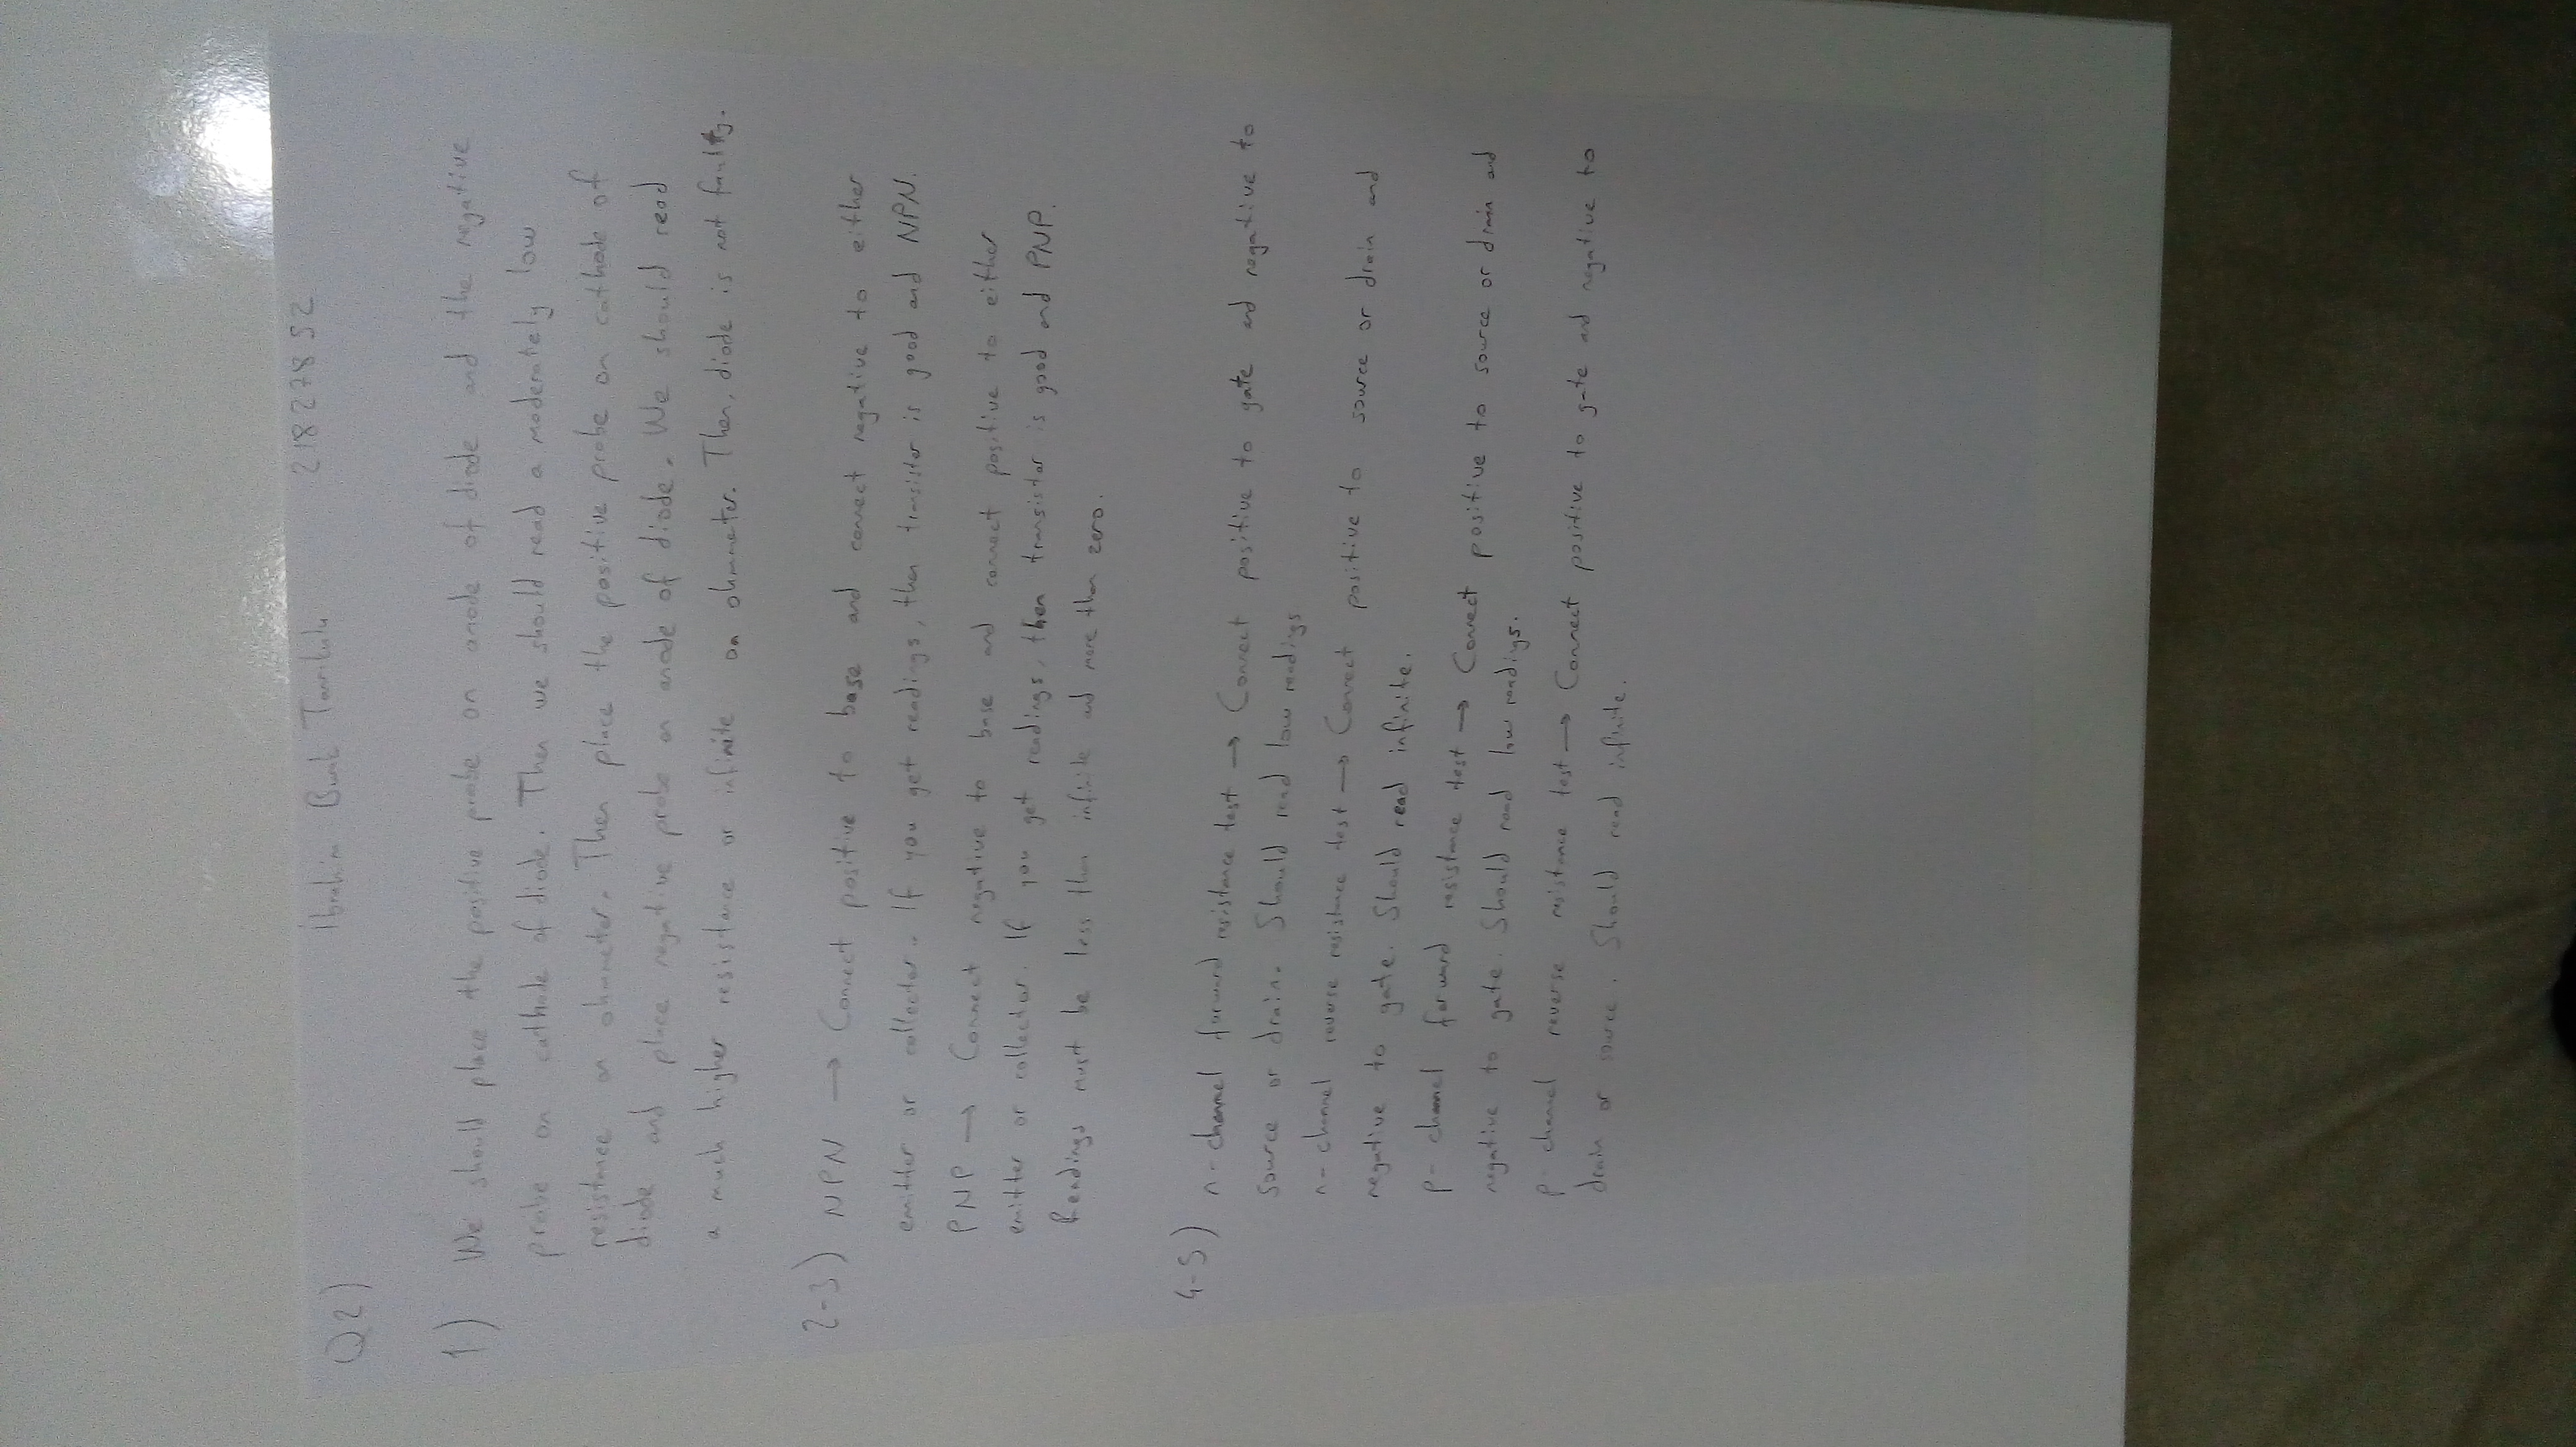 Q2) İbrahim Burak Tanrıkulu 21827852
1) We should place the positive probe on anode of diode and the negative
probe on cathode of diode. Then we should read a moderately low
resistance on ohmmeter. Then place the positive probe on cathode of
diode and place negative probe on anode of diode. We should read
a much higher resistance or infinite on ohmmeter. Then, diode is not faulty.
2-3) NPN → Connect positive to base and connect negative to either
emitter or collector. If you get readings, then transistor is good and NPN.
PNP → Connect negative to base and connect positive to either
emitter or collector. If you get readings, then transistor is good and PNP.
Readings must be less than infinite and more than zero.
4-5) n-channel forward resistance test → Connect positive to gate and negative to
source or drain. Should read low readings
n-channel reverse resistance test → Connect positive to source or drain and
negative to gate. Should read infinite.
p-channel forward resistance test → Connect positive to source or drain and
negative to gate. Should read low readings.
p channel reverse resistance test → Connect positive to gate and negative to
drain or source. Should read infinite.